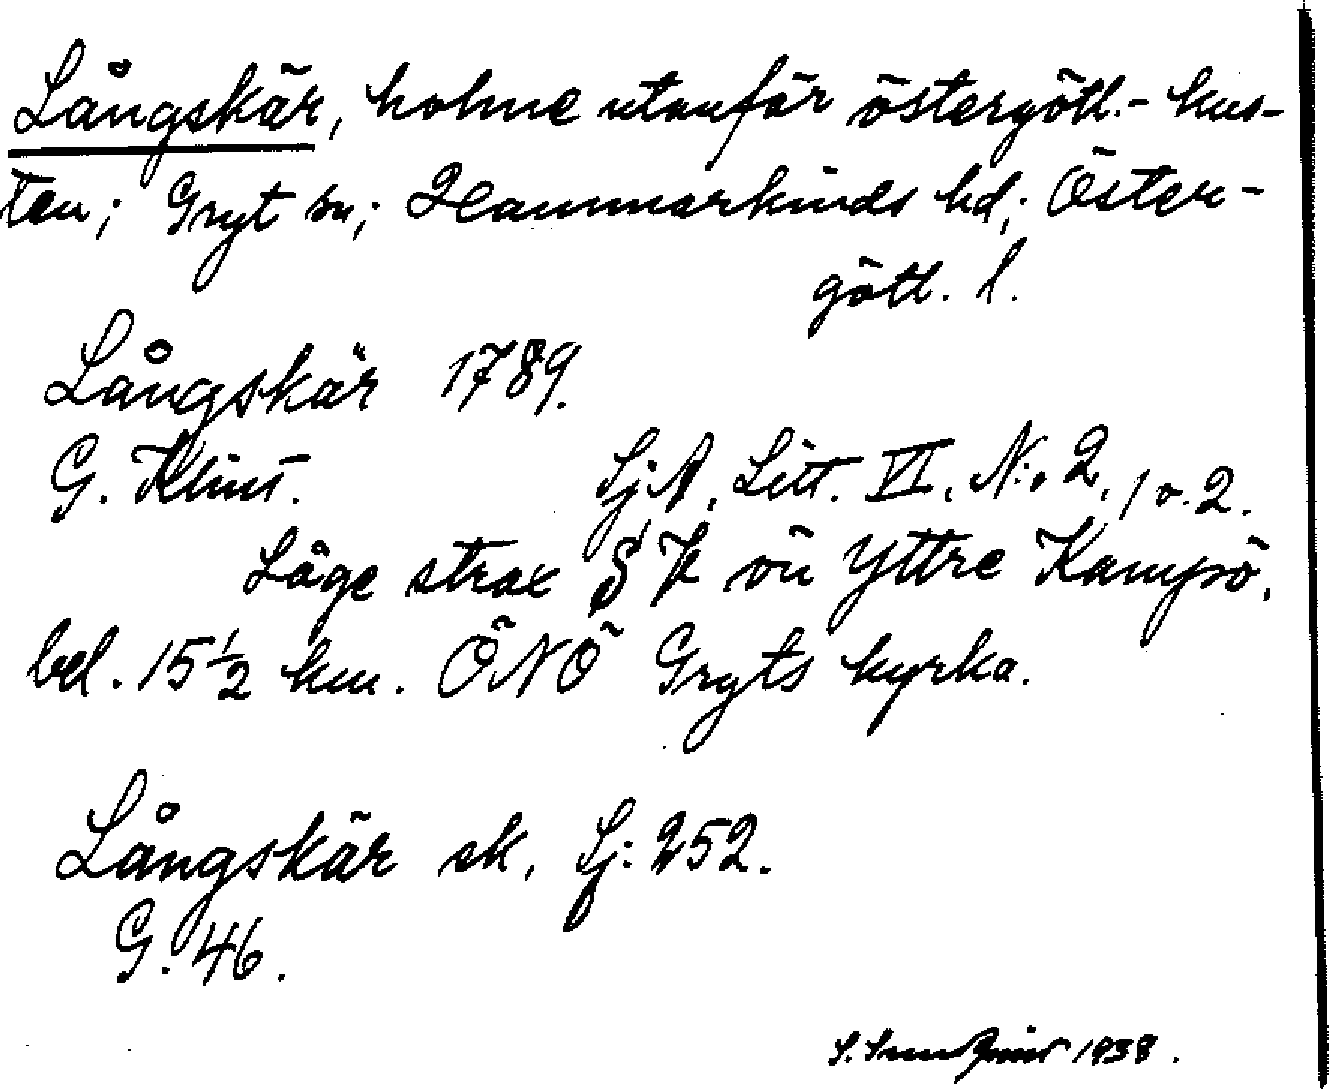 Långskär, holme utanför östergötl.- kus-
ten; Gryt sn; Hammarkinds hd; Öster-
götl. l.
Långskär 1789.
G. Klint. SjA, Litt. VI, N:o 2, 1 o. 2.
Läge strax S k öü Yttre Kampö,
bel. 15½ km. ÖNÖ Gryts kyrka.
Långskär sk, Sj: 252.
G. 46.
S. 1938.